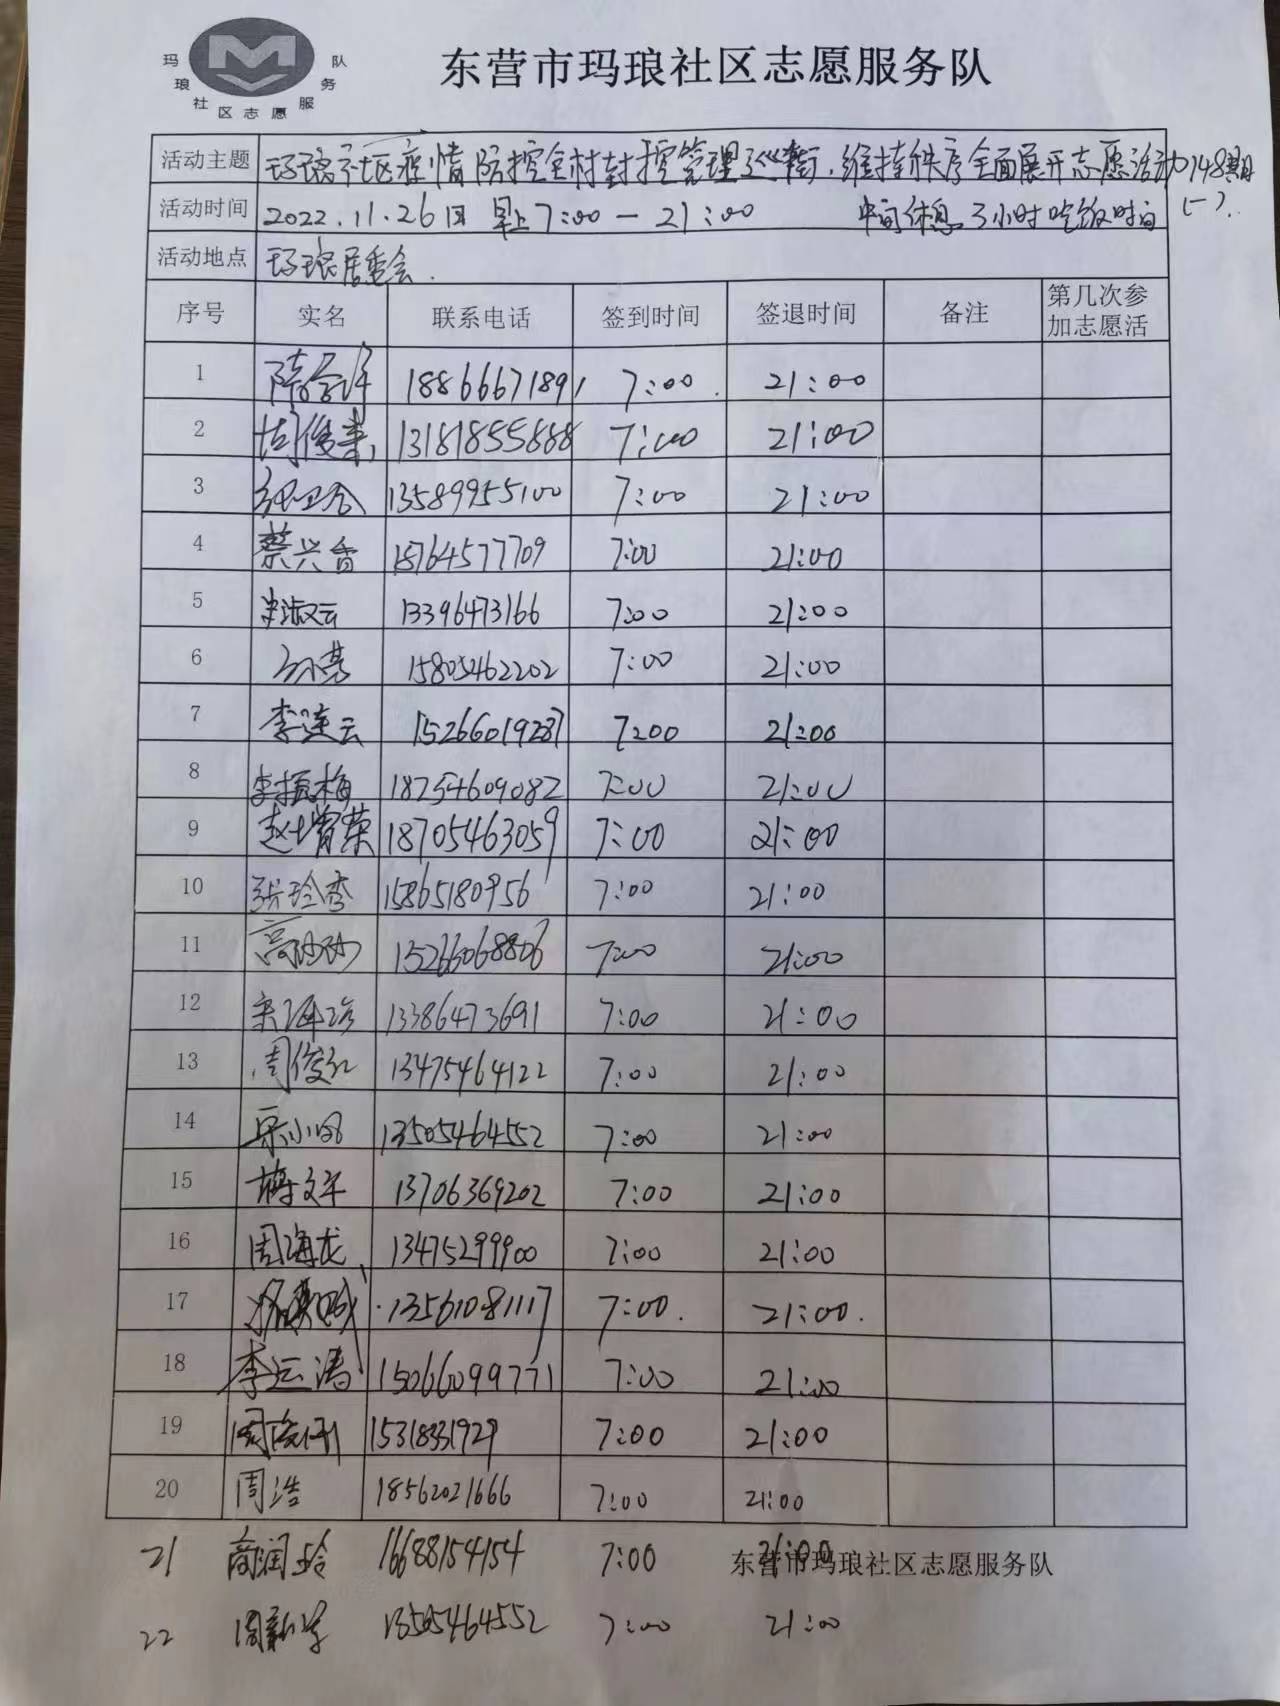 玛琅社区志愿服务队
东营市玛琅社区志愿服务队
活动主题 玛琅社区疫情防控全村封控管理巡街.维持秩序全面展开志愿活动148期
活动时间 2022.11.26日 早上7:00-21:00 中间休息3小时吃饭时间 (一).
活动地点 玛琅居委会.
序号 实名 联系电话 签到时间 签退时间 备注 第几次参加志愿活
1 18866671891 7:00 21:00
2 13181855888 7:00 21:00
3 13589955100 7:00 21:00
4 蔡兴香 18764577709 7:00 21:00
5 13396473166 7:00 21:00
6 15805462202 7:00 21:00
7 李连云 15266019287 7:00 21:00
8 李振梅 18754609082 7:00 21:00
9 赵增荣 18705463059 7:00 21:00
10 张玲秀 15865180956 7:00 21:00
11 15266068806 7:00 21:00
12 13386473691 7:00 21:00
13 周俊红 13475464122 7:00 21:00
14 13505464552 7:00 21:00
15 梅文军 13706369202 7:00 21:00
16 周海龙 13475299900 7:00 21:00
17 13561081117 7:00. 21:00.
18 李运涛 15066099771 7:00 21:00
19 15318331929 7:00 21:00
20 周浩 18562021666 7:00 21:00
21 商润玲 16688154154 7:00 21:00
东营市玛琅社区志愿服务队
22 周新学 13505464552 7:00 21:00